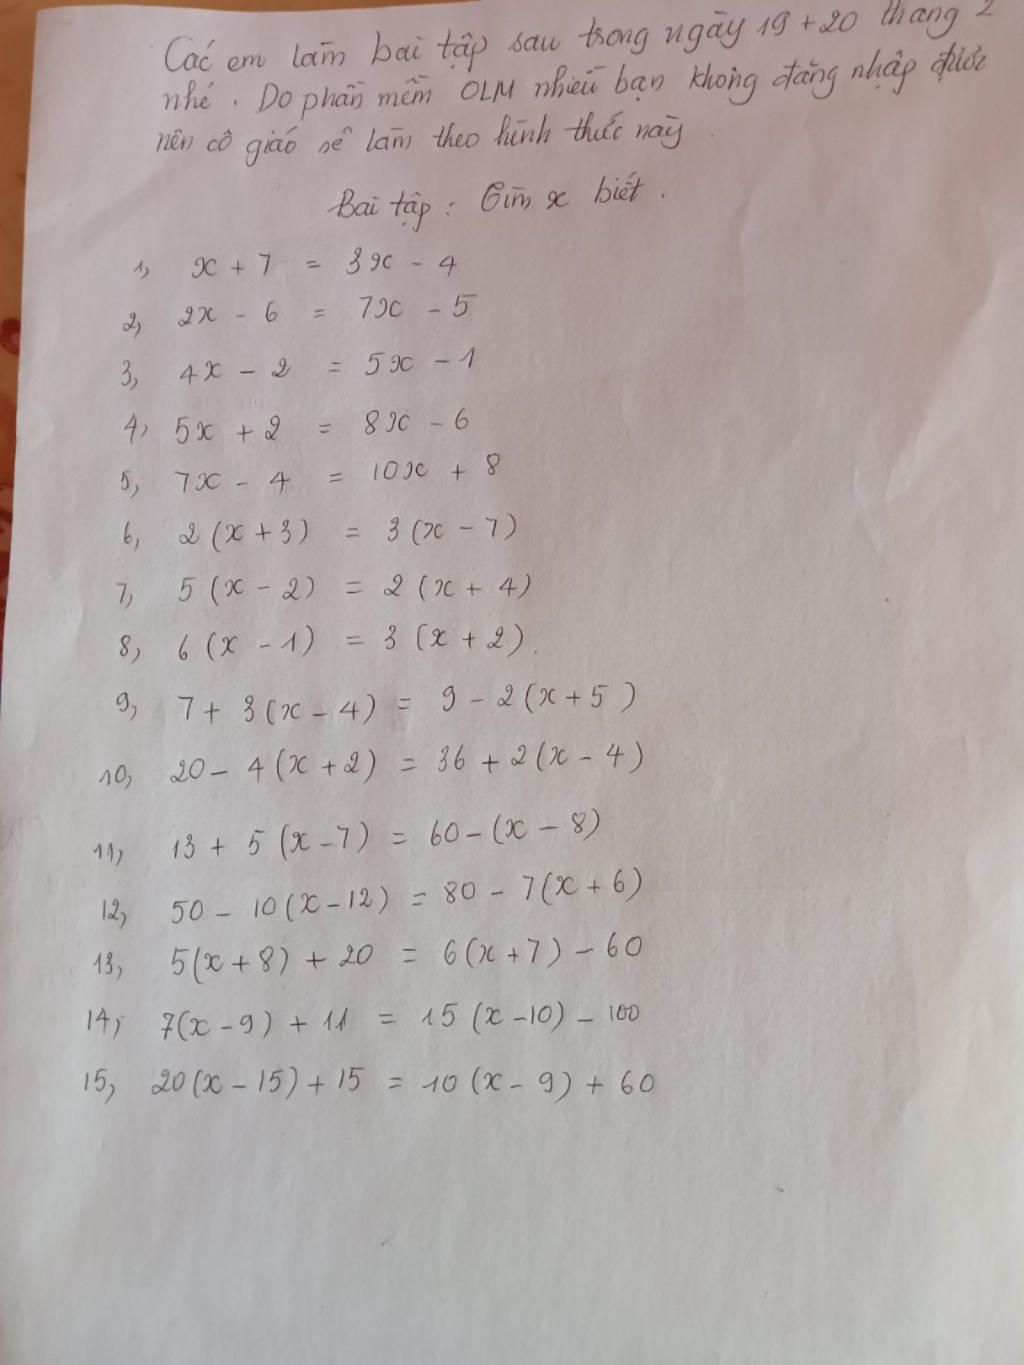 Các em làm bài tập sau trong ngày 19 + 20 tháng 2
nhé. Do phần mềm OLM nhiều bạn không đăng nhập được
nên cô giáo sẽ làm theo hình thức này.
Bài tập: Tìm x biết.
1, x + 7 = 3x - 4
2, 2x - 6 = 7x - 5
3, 4x - 2 = 5x - 1
4, 5x + 2 = 8x - 6
5, 7x - 4 = 10x + 8
6, 2(x + 3) = 3(x - 7)
7, 5(x - 2) = 2(x + 4)
8, 6(x - 1) = 3(x + 2).
9, 7 + 3(x - 4) = 9 - 2(x + 5)
10, 20 - 4(x + 2) = 36 + 2(x - 4)
11, 13 + 5(x - 7) = 60 - (x - 8)
12, 50 - 10(x - 12) = 80 - 7(x + 6)
13, 5(x + 8) + 20 = 6(x + 7) - 60
14, 7(x - 9) + 11 = 15(x - 10) - 100
15, 20(x - 15) + 15 = 10(x - 9) + 60